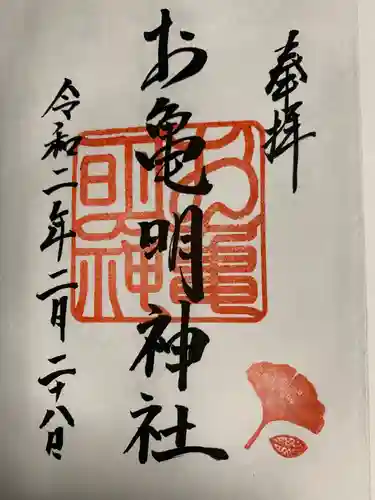 奉拝
お亀明神社
お亀
明神
令和二年二月二十八日